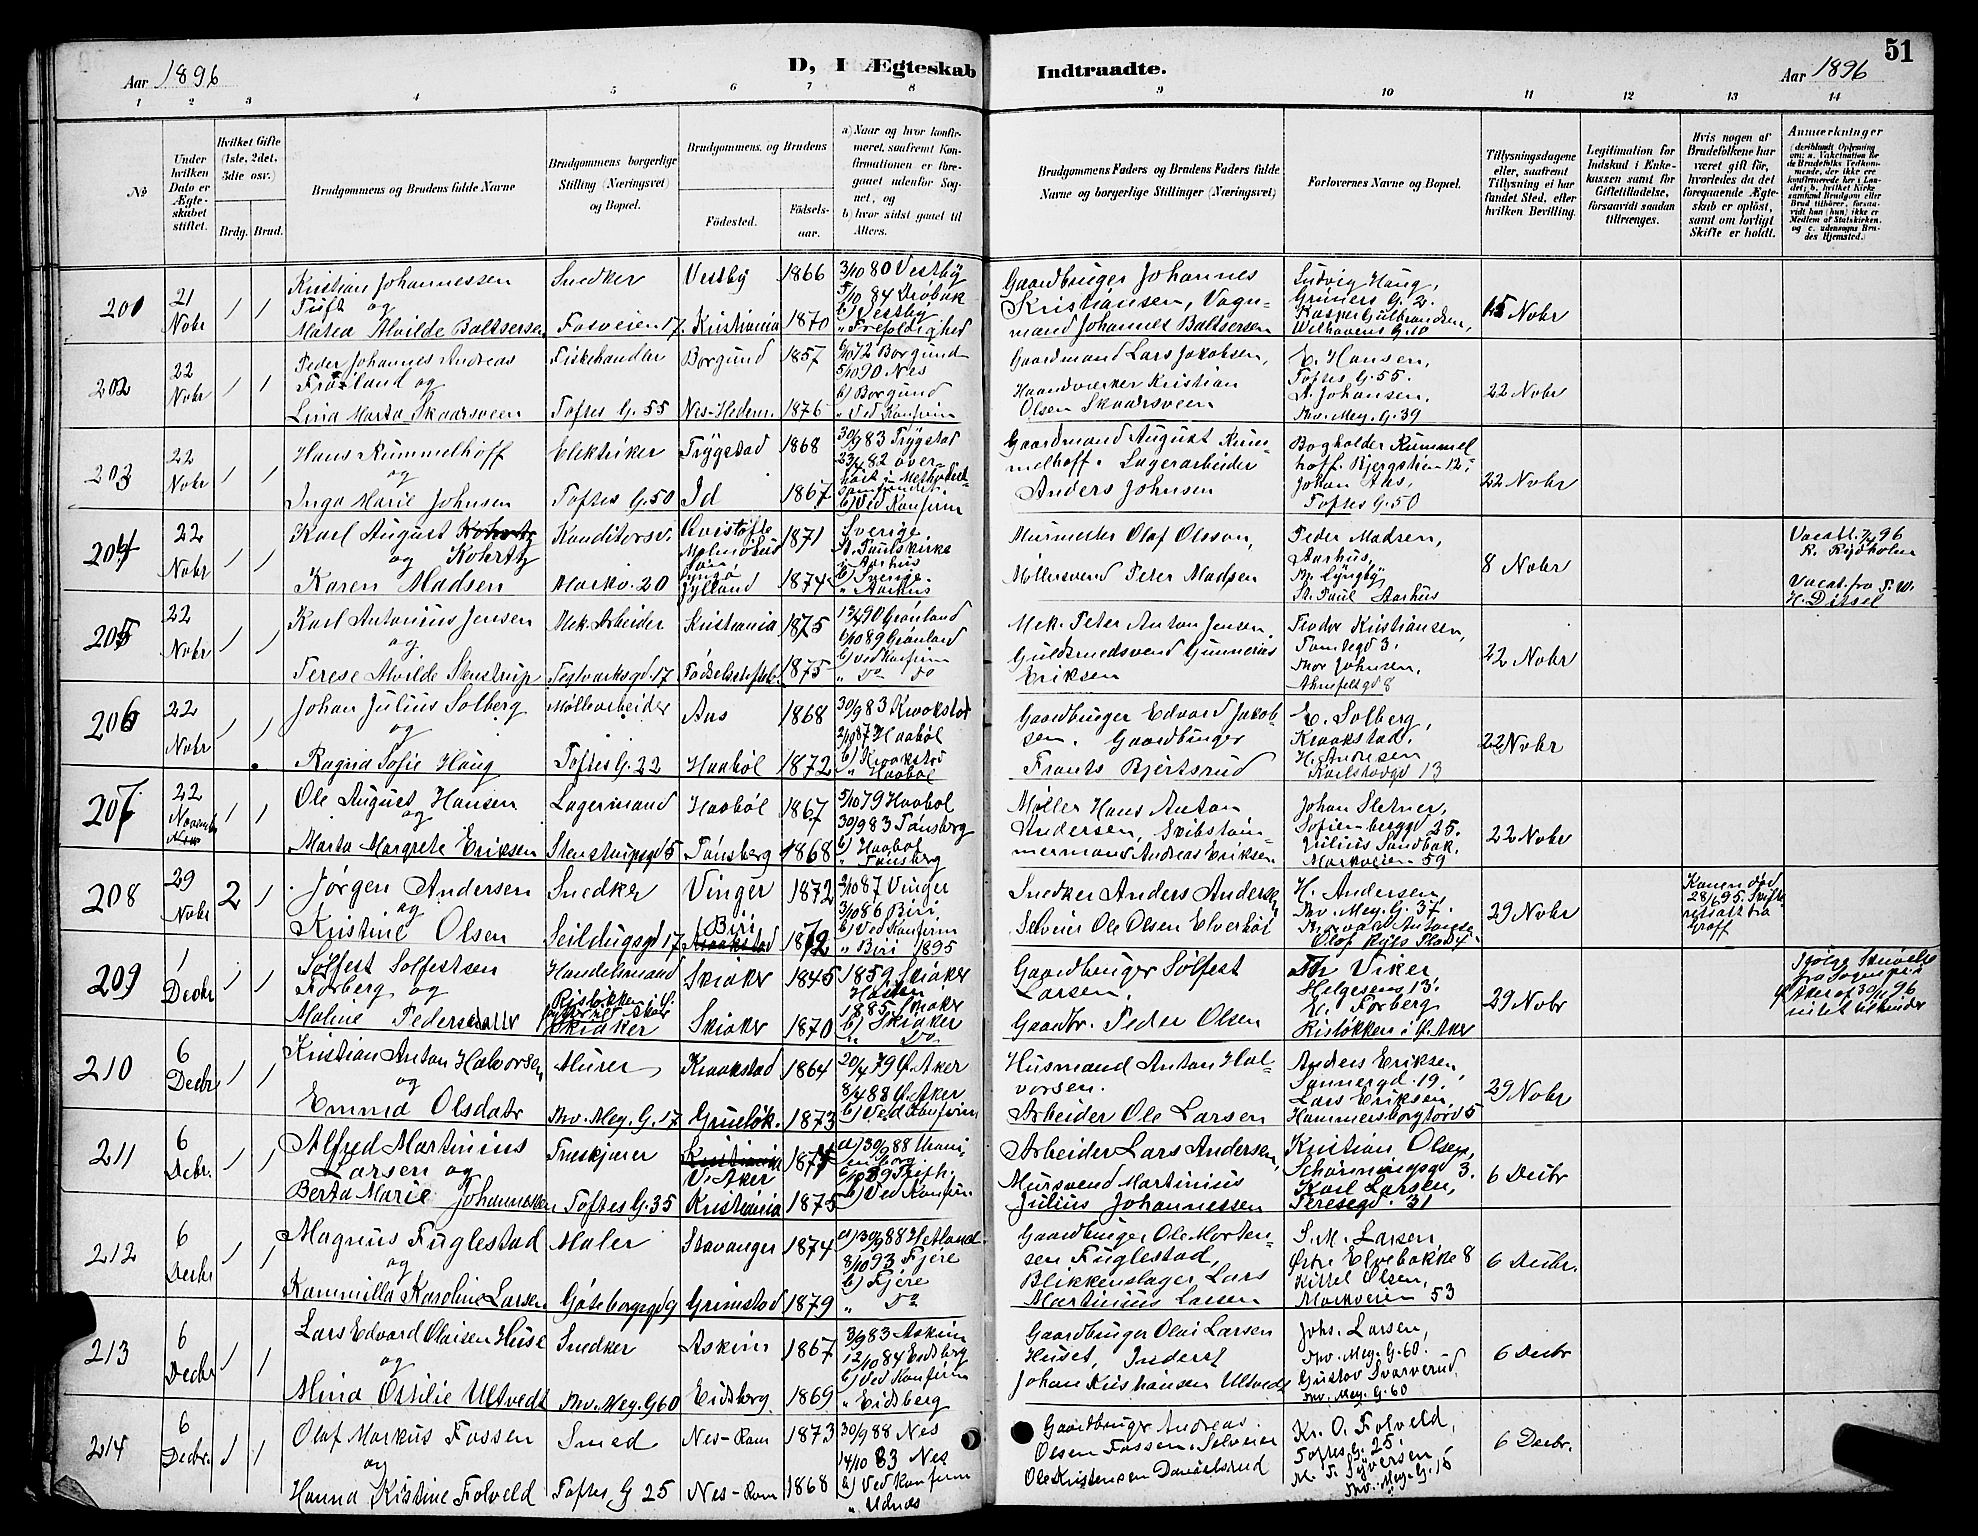 51
Aar 1896
D, I Ægteskab Indtraadte.
Aar 1896
1 2 3 4 5 6 7 8 9 10 11 12 13 14
No
Under hvilken Dato er Ægteskabet stiftet.
Hvilket Gifte (1ste, 2det, 3die osv.)
Brdg. Brud.
Brudgommens og Brudens fulde Navne
Brudgommens borgerlige Stilling (Næringsvei) og Bopæl.
Brudgommens og Brudens
Fødested. Fødselsaar.
a) Naar og hvor konfirmeret, saafremt Konfirmationen er foregaaet udenfor Sognet, og
b) hvor sidst gaaet til Alters.
Brudgommens Faders og Brudens Faders fulde Navne og borgerlige Stillinger (Næringsvei)
Forlovernes Navne og Bopæl.
Tillysningsdagene eller, saafremt Tillysning ei har fundet Sted, efter hvilken Bevilling.
Legitimation for Indskud i Enkekassen samt for Giftetilladelse, forsaavidt saadan tiltrænges.
Hvis nogen af Brudefolkene har været gift før, hvorledes da det foregaaende Ægteskab er opløst, samt om lovligt Skifte er holdt.
Anmærkninger
201 21 Nobr 1 1
Kristian Johannessen Tuft og
Snedker Vestby 1866
3/10 80 Vestby
5/10 84 Drøbak
Matea Alvilde Baltsersen Fosveien 17. Kristiania 1870
b) Vestby
" Trefoldighed
Gaardbruger Johannes Kristiansen, Vognmand Johannes Baltsersen
Ludvig Haug, Grüners G. 2.
Kasper Gulbrandsen, Welhavens G. 10
15 Nobr
202 22 Nobr 1 1
Peder Johannes Andreas Frøiland og
Fiskehandler Borgund 1857
6/10 72 Borgund
5/10 90 Nes
Lina Marta Skaarsveen Toftes G. 55 Nes-Hedem. 1876
b) Borgund
" Ved Konfirm
Gaardmand Lars Jakobsen,
Haandverker Kristian Olsen Skaarsveen
E. Hansen, Toftes G. 55.
Johansen, Thv. Mey. G. 39
22 Nobr
203 22 Nobr 1 1
Hans Rummelhoff og
Elektriker Trygstad 1868
30/9 83 Trygstad
23/4 82 over-
Inga Marie Johnsen Toftes G. 50 Id 1867
b) Ved Konfirm
Gaardmand August Rummelhoff. Lagerarbeider Anders Johnsen
Bogholder Rummelhoff. Bjergstien 12,
Johan Aas, Toftes G. 50
22 Nobr
204 22 Nobr 1 1
Karl August Kohrtz og
Konditorsv. Kvistofte Malmøhus Län 1871
Sverige.
St. Paulskirke i Aarhus
Karen Madsen Markv. 20 Jylland 1874
b) Sverige.
" Aarhus
Murmester Olof Olsson,
Møllersvend Peter Madsen
Peder Madsen, Aarhus,
St. Paul Aarhus
8 Nobr
205 22 Nobr 1 1
Karl Antonius Jensen og
Mek. Arbeider Kristiania 1875
12/4 90 Grønland
6/10 89 Grønland
Terese Alvilde Stenstrup Teglverksgd 17 Fødselsstift. 1875
b) ved Konfirm
" Do Do
Mek. Peter Anton Jensen.
Guldsmedsvend Gunnerius Eriksen
Teodor Kristiansen, Tomtegd 3.
Thor Johnsen, Ahnfeltsgd 8
22 Nobr
206 22 Nobr 1 1
Johan Julius Solberg og
Møllearbeider Aas 1868
30/9 83 Kraakstad
2/10 87 Haabøl
Ragna Sofie Haug Toftes G. 22 Haabøl 1872
b) Kraakstad
" Haabøl
Gaardbruger Edvard Jakobsen. Gaardbruger Frants Bjertsrud
E. Solberg, Kraakstad.
H. Andresen Karlstadgd 13
22 Nobr
207 22 Novembr 1 1
Ole August Hansen og
Lagermand Haabøl 1867
5/10 79 Haabøl
30/9 83 Tønsberg
Marta Margrete Eriksen Stenstrupsgd 5 Tønsberg 1868
b) Haabøl
" Tønsberg
Møller Hans Anton Andersen, Skibstømmermand Andreas Eriksen
Johan Sletner, Sofienberggd 25.
Julius Sandbak, Markveien 59
22 Nobr
208 29 Nobr 2 1
Jørgen Andersen og
Snedker Vinger 1872
2/10 87 Vinger
3/10 86 Biri.
Kristine Olsen Seildugsgd 17 Biri Kraakstad 1872
b) Ved Konfirm
" Biri 1895
Snedker Anders Andersen,
Selveier Ole Olsen Elverhøi
H. Andersen, Thv. Mey. G. 37.
Olaf Ryes Plads 4
29 Nobr
Konen død 28/6 95.
209 1 Decbr 1 1
Solfest Solfestsen Forberg og
Handelsmand Skiaker 1845
1859 Skiaker
Høsten 1885 Skiaker
Maline Pedersdatter Skiaker Skiaker 1870
b) Skiaker
" Do
Gaardbruger Solfest Larsen.
Gaardbr. Peder Olsen
Th Viker, Helgesens 13.
Forberg Risløkken i Ø. Aker
29 Nobr
210 6 Decbr 1 1
Kristian Anton Halvorsen og
Murer Kraakstad 1864
20/4 79 Ø. Aker
8/4 88 Ø. Aker
Emma Olsdatr Thv. Mey. G. 17 Grueløk. 1873
b) Ved Konfirm
Husmand Anton Halvorsen.
Arbeider Ole Larsen
Anders Eriksen, Sannergd. 19.
Lars Eriksen, Hammersborgtorv 5
29 Nobr
211 6 Decbr. 1 1
Alfred Martinius Larsen og
Træskjærer Kristiania V. Aker
a) 30/9 88 Uranienborg.
Berta Marie Johannessen Toftes G. 35 Kristiania 1875
b) Ved Konfirm
Arbeider Lars Andersen,
Mursvend Martinius Julius Johannessen
Kristian Olsen, Schønningsgd 3.
Karl Larsen, Teresegd. 31
6 Decbr
212 6 Decbr 1 1
Magnus Fuglestad og
Maler Stavanger 1874
a) 30/9 88 Hetland
8/10 93 Fjere
Kammilla Karoline Larsen Gøteborgsgd 9 Grimstad 1879
b) Fjere
" Do
Gaardbruger Ole Mortensen Fuglestad,
Blikkenslager Lars Martinius Larsen
S. M. Larsen, Østre Elvebakke 8
Kittel Olsen, Markveien 53
6 Decbr.
213 6 Decbr 1 1
Lars Edvard Olaisen Huse og
Snedker Askim 1867
3/9 83 Askim
12/10 84 Eidsberg
Alina Ottilie Ultvedt Thv. Mey. G 60 Eidsberg 1869
b) Ved Konfirm
" Eidsberg
Gaardbruger Olai Larsen Huset, Inderst Johan Kristiansen Ultvedt
Johs. Larsen, Thv. Mey. G. 60.
Gustav Svarverud, Thv. Mey. G. 60
6 Decbr
214 6 Decbr. 1 1
Olaf Markus Fossen og
Smed Nes-Rom 1873
30/9 88 Nes
14/10 83 Nes
Hanna Kristine Folveld Toftes G 25 Nes-Rom 1868
b) Ved Konfirm
" Udnæs
Gaardbruger Andreas Olsen Fossen. Selveier Ole Kristensen Danielsrud
Kr. O. Folveld, Toftes G. 25.
M. T. Syversen, Thv. Mey. G. 16
6 Decbr.